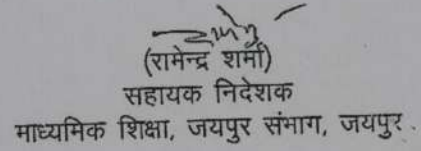 (रामेन्द्र शर्मा)
सहायक निदेशक
माध्यमिक शिक्षा, जयपुर संभाग, जयपुर.